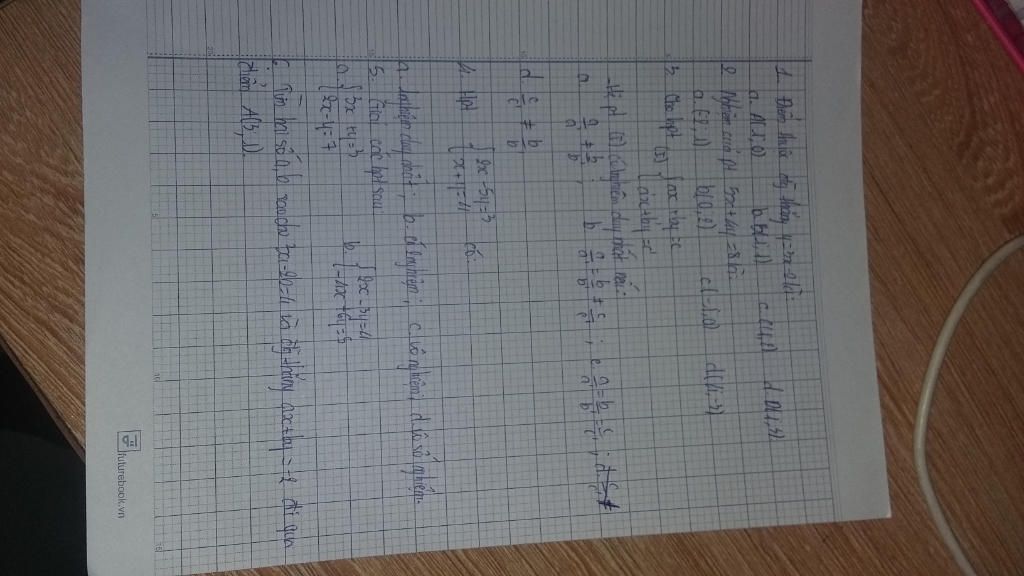 1. Điểm thuộc đg thẳng y=3x-2 là:
a. A(1,0) b. B(1,1) c. C(4,1) d. D(1,2)
2. Nghiệm của pt 5x+4y=8 là:
a. (3,1) b(0,2) c(-1,0) d(1,-2)
3. Cho hpt (I) { ax+by=c
a'x+b'y=c'
Hệ pt (I) có nghiệm duy nhất nếu:
a a/a' ≠ b/b' ; b a/a' = b/b' ≠ c/c' ; c a/a' = b/b' = c/c' ;
d c/c' ≠ b/b'
4. Hpt { 2x-5y=3
x+y=4 có:
a. 1 nghiệm duy nhất; b. có 2 nghiệm; c. vô nghiệm; d. vô số nghiệm.
5. Giải các hpt sau:
a. { 3x+y=3 b { 2x-3y=4
2x-y=7 -4x+6y=5
6 Tìm hai số a, b sao cho và đg thẳng ax+by=-2 đi qua
điểm A(3,1).
futurebook.vn